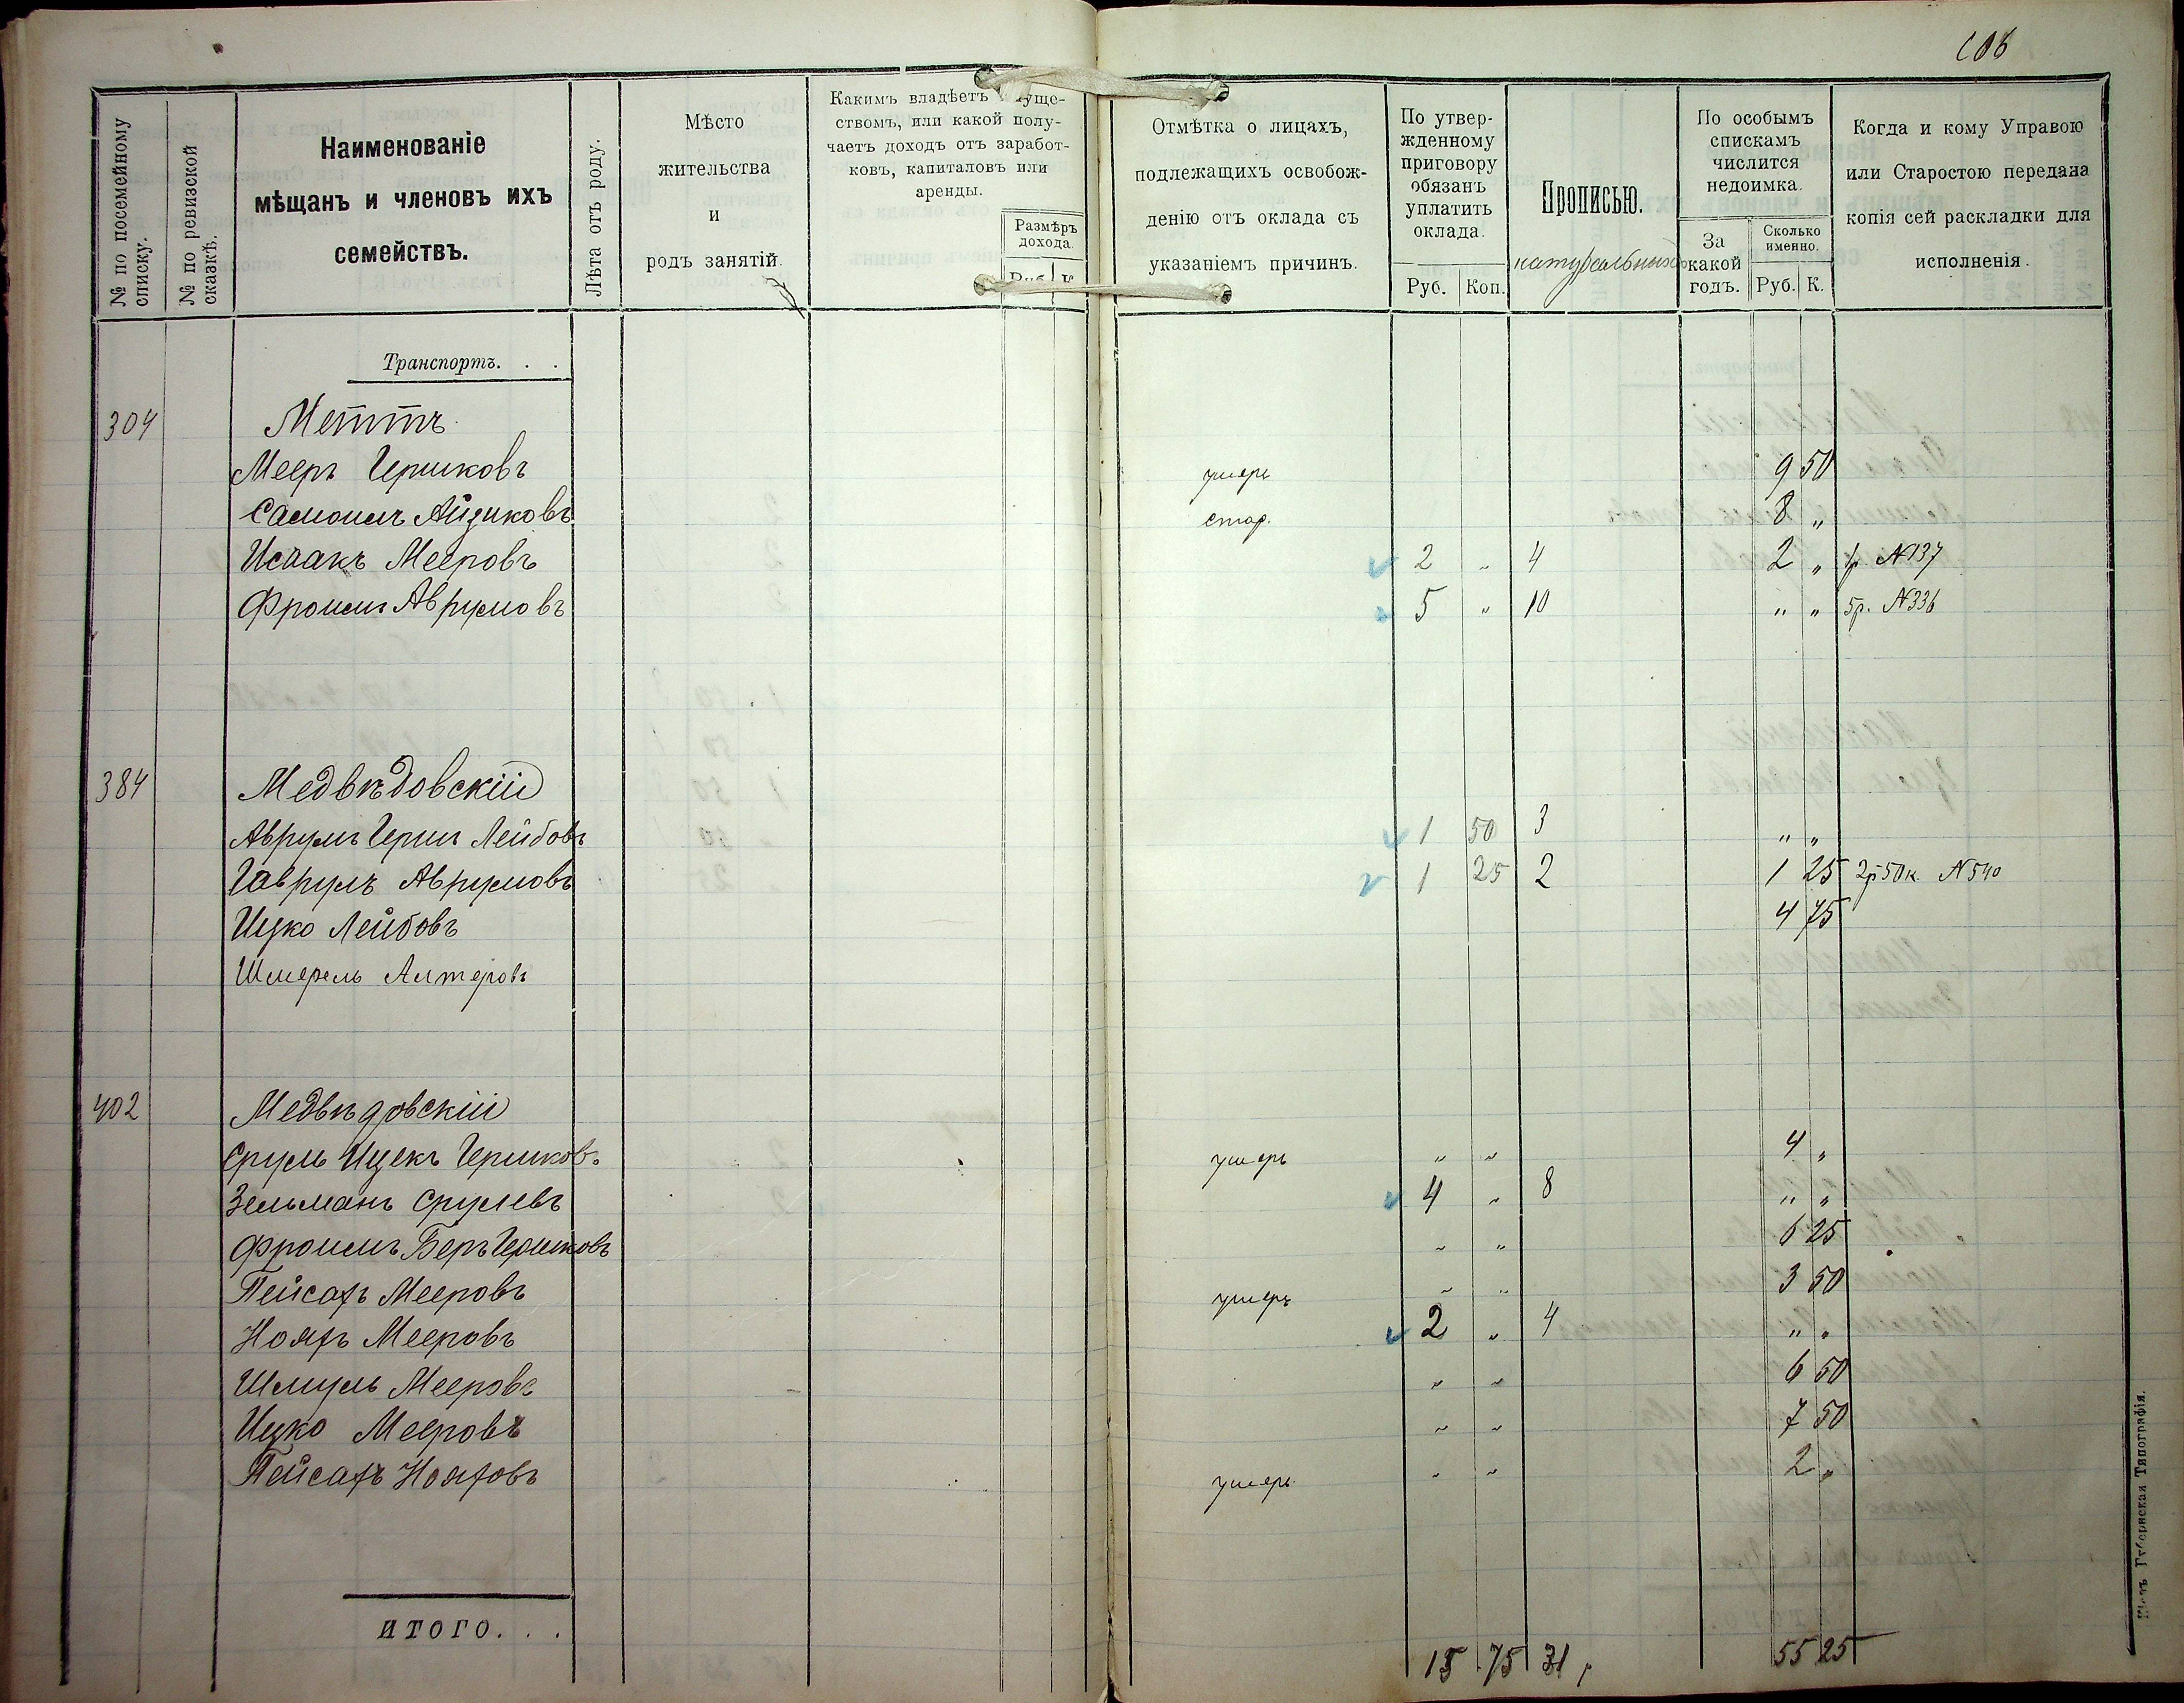 108
№ по посемейному списку.
№ по ревизской сказкѣ.
Наименованіе
мѣщанъ и членовъ ихъ
семействъ.
Лѣта отъ роду.
Мѣсто
жительства
и
родъ занятій.
Какимъ владѣетъ
ствомъ, или какой полу-
чаетъ доходъ отъ заработ-
ковъ, капиталовъ или
аренды.
Размѣръ
дохода.
Руб. К.
Отмѣтка о лицахъ,
подлежащихъ освобож-
денію отъ оклада съ
указаніемъ причинъ.
По утвер-
жденному
приговору
обязанъ
уплатить
оклада.
Руб. Коп.
Прописью.
натуральныхъ
По особымъ
спискамъ
числится
недоимка.
За
какой
годъ.
Сколько
именно.
Руб. К.
Когда и кому Управою
или Старостою передана
копія сей раскладки для
исполненія.
Транспортъ. . .
304 Меттъ
Мееръ Гершковъ умеръ 9 50
Самоилъ Айзиковъ стар. 8 „
Исаакъ Мееровъ 2 „ 4 2 „ 1р. №137
Фроимъ Аврумовъ 5 „ 10 „ „ 5р. №336
384 Медвѣдовскій
Аврумъ Гершъ Лейбовъ 1 50 3 „ „
Гаврумъ Аврумовъ 1 25 2 1 25 2р50к. №540
Ицко Лейбовъ 4 75
Шмерель Алтеровъ
402 Медвѣдовскій
Сруль Ицекъ Гершковъ умеръ „ „ 4 „
Зельманъ Срулевъ 4 „ 8 „ „
Фроимъ Беръ Гершковъ „ „ 6 25
Пейсахъ Мееровъ умеръ „ „ 3 50
Нояхъ Мееровъ 2 „ 4 „ „
Шмуль Мееровъ „ „ 6 50
Ицко Мееровъ „ „ 7 50
Пейсахъ Нояховъ умеръ „ „ 2 „
ИТОГО. . . 15 75 31 55 25
Губернская Типографія.